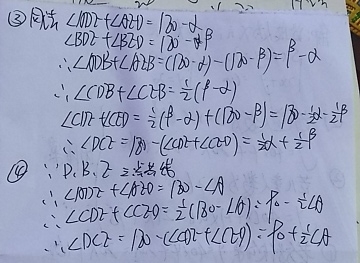 ③ 同法 ∠ADZ+∠AZD=180-α
∠BDZ+∠BZD=180-β
∴∠ADB+∠AZB=(180-α)-(180-β)=β-α
∴∠CDB+∠CZB=½(β-α)
∠CDZ+∠CZD=½(β-α)+(180-β)=180-½α-½β
∴∠DCZ=180-(∠CDZ+∠CZD)=½α+½β
④ ∵D.B.Z 三点共线
∴∠ADZ+∠AZD=180-∠A
∴∠CDZ+∠CZD=½(180-∠A)=90-½∠A
∴∠DCZ=180-(∠CDZ+∠CZD)=90+½∠A